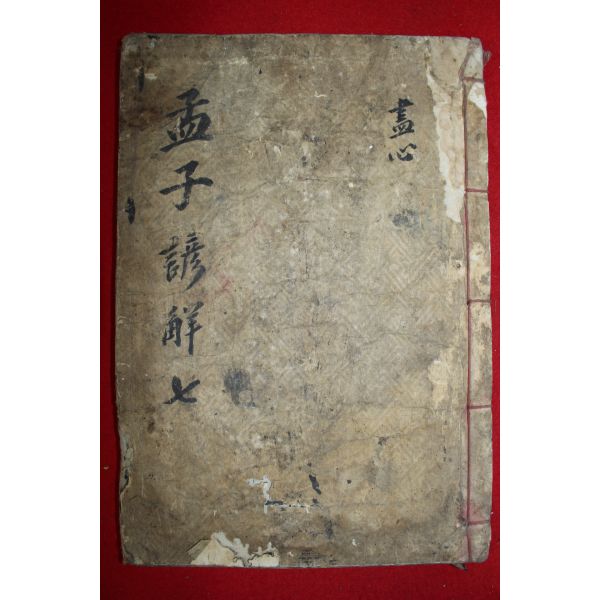 盡心
孟子諺解七